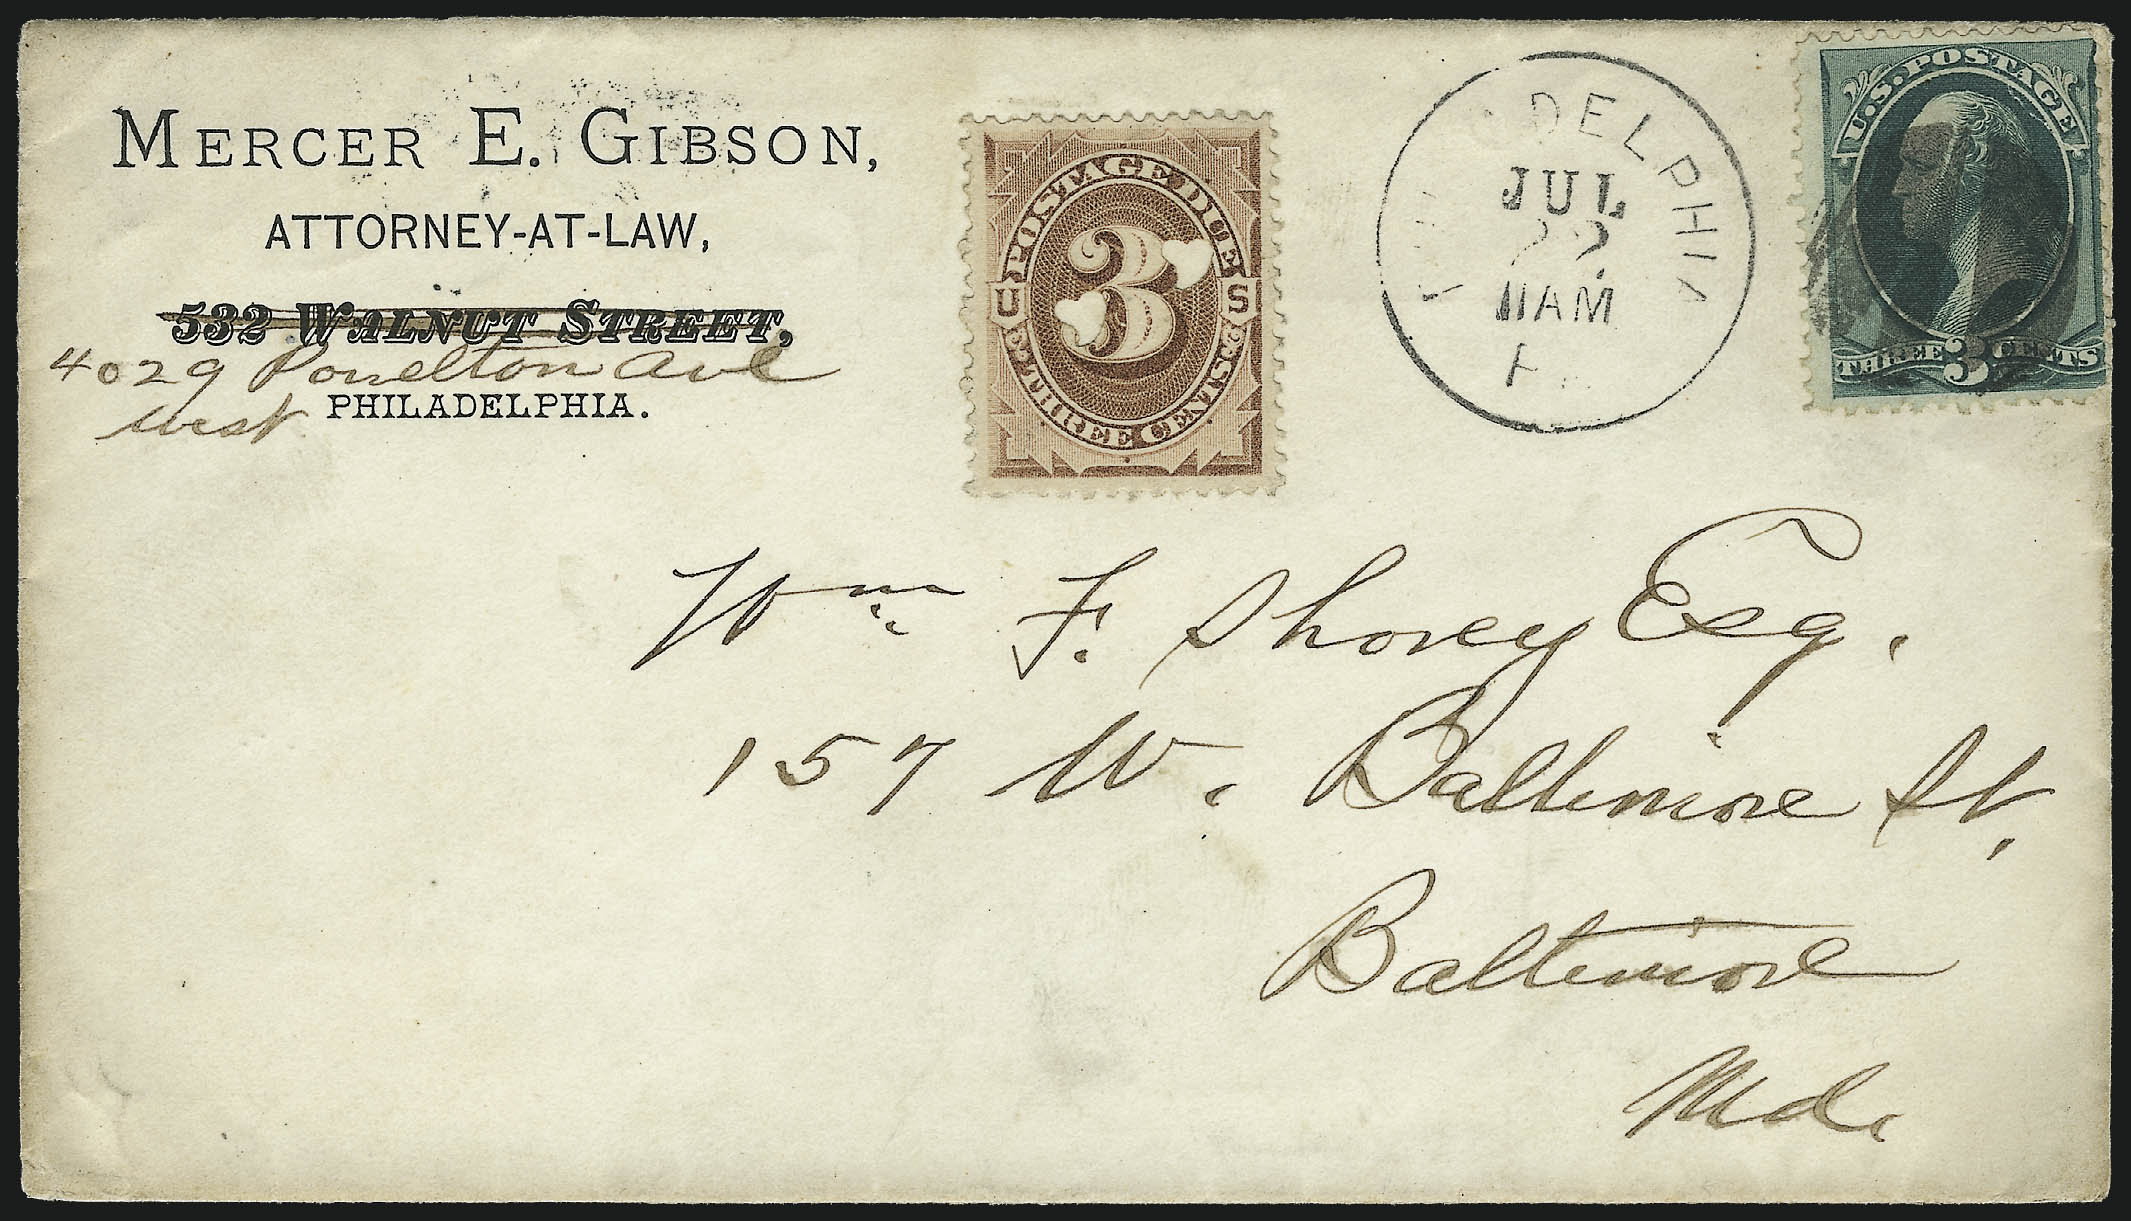 MERCER E. GIBSON,
ATTORNEY-AT-LAW,
532 WALNUT STREET,
4029 Powelton Ave
West PHILADELPHIA.
U.S. POSTAGE DUE
3
THREE CENTS
DELPHIA
JUL
22
11 AM
U.S. POSTAGE
THREE 3 CENTS
Wm F. Shorey Esq.
157 W. Baltimore St.
Baltimore
Md.